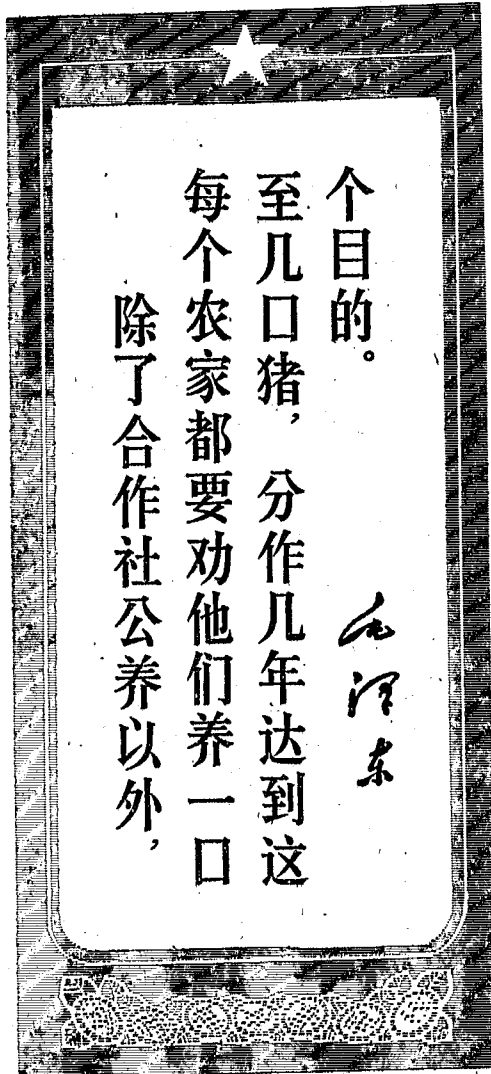 除了合作社公养以外，
每个农家都要劝他们养一口
至几口猪，分作几年达到这
个目的。
毛泽东